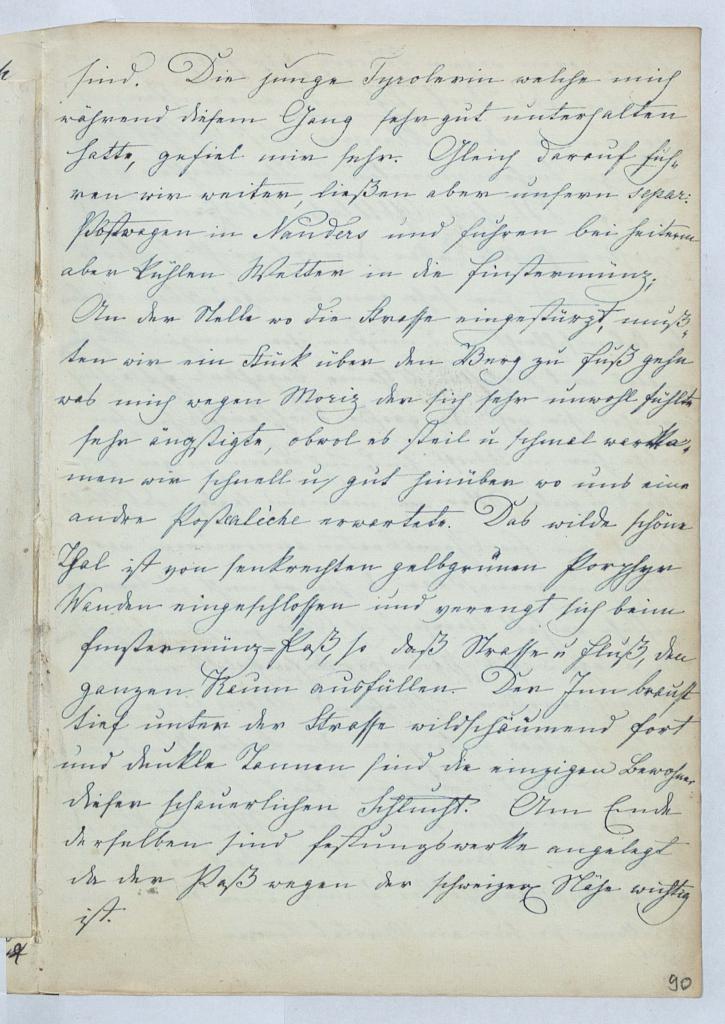 sind. Die junge Tyrolerin welche mich
während diesem Gang sehr gut unterhalten
hatte, gefiel mir sehr. Gleich darauf fuh-
ren wir weiter, ließen aber unsern separ:
Postwagen in Nauders und fuhren bei heiterm
aber kühlen Wetter in die Finstermünz.
An der Stelle wo die Strasse eingestürzt, muß-
ten wir ein Stück über den Berg zu Fuß gehn
was mich wegen Moriz der sich sehr unwohl fühlte
sehr ängstigte, obwol es steil u schmal war ka-
men wir schnell u gut hinüber wo uns eine
andre Postcalèche erwartete. Das wilde schöne
Thal ist von senkrechten gelbgrünen Porphyr
Wänden eingeschlossen und verengt sich beim
Finstermünz-Paß, so daß Strasse u Fluß, den
ganzen Raum ausfüllen. Der Inn braust
tief unter der Strasse wildschäumend fort
und dunkle Tannen sind die einzigen Bewohner
dieser schauerlichen Schlucht. Am Ende
derselben sind Festungswerke angelegt
da der Paß wegen der schweizer Nähe wichtig
ist.
90